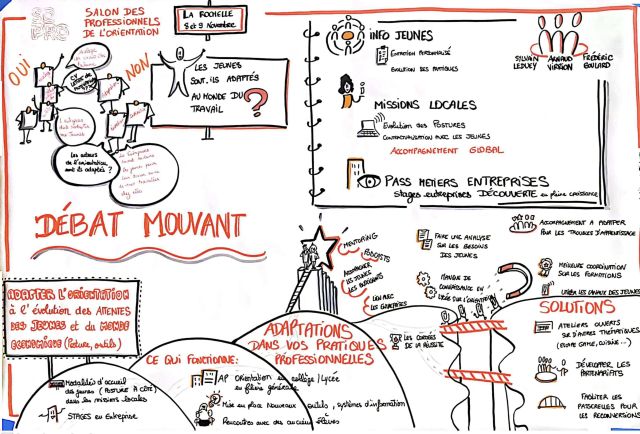 SALON DES
PROFESSIONNELS
DE L'ORIENTATION
LA ROCHELLE
8 et 9 Novembre
OUI
NON
LES JEUNES
SONT-ILS ADAPTÉS
AU MONDE DU
TRAVAIL
?
Les acteurs
de l'orientation
sont-ils adaptés ?
DÉBAT MOUVANT
INFO JEUNES
ENTRETIEN PERSONNALISÉ
EVOLUTION DES PRATIQUES
SYLVAIN
LEDUEY
ARNAUD
VIRTION
FRÉDÉRIC
GOULARD
MISSIONS LOCALES
Evolution des Postures
CONTRACTUALISATION AVEC LES JEUNES
ACCOMPAGNEMENT GLOBAL
PASS METIERS ENTREPRISES
Stages entreprises DÉCOUVERTE en pleine croissance
ADAPTER L'ORIENTATION
à l'évolution des ATTENTES
DES JEUNES et du MONDE
ECONOMIQUE (Posture, outils)
CE QUI FONCTIONNE:
Modalités d'accueil
des jeunes (POSTURE À CÔTÉ)
dans les missions locales
STAGES en Entreprise
AP Orientation en collège/Lycée
en filière générale
Mise en place Nouveaux outils, systèmes d'information
Rencontres avec des anciens élèves
ADAPTATIONS
DANS VOS PRATIQUES
PROFESSIONNELLES
MENTORING
PODCASTS
ACCOMPAGNER
LES JEUNES
LIEN AVEC
LES ENTREPRISES
FAIRE UNE ANALYSE
SUR LES BESOINS
DES JEUNES
MANQUE DE
CONNAISSANCE EN
LYCÉE SUR L'ORIENTATION
LES CORDÉES
DE LA RÉUSSITE
ACCOMPAGNEMENT À ADAPTER
POUR LES TROUBLES D'APPRENTISSAGE
MEILLEURE COORDINATION
SUR LES FORMATIONS
LIBÉRER LA PAROLE DES JEUNES
SOLUTIONS
ATELIERS OUVERTS
SUR D'AUTRES THÉMATIQUES
(ESCAPE GAME, CUISINE...)
DÉVELOPPER LES
PARTENARIATS
FACILITER LES
PASSERELLES POUR
LES RECONVERSIONS